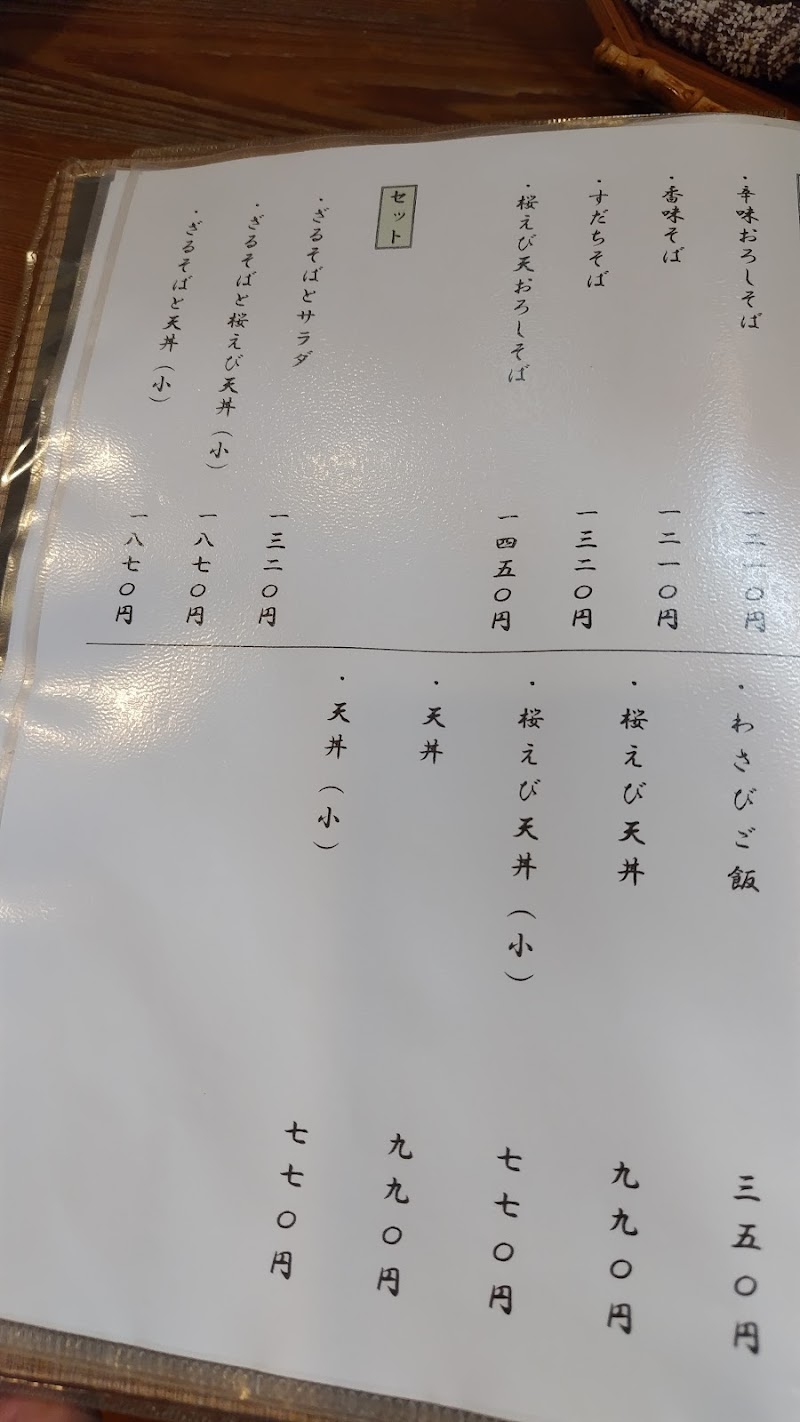 ・辛味おろしそば 一二一〇円
・香味そば 一二一〇円
・すだちそば 一三二〇円
・桜えび天おろしそば 一四五〇円
セット
・ざるそばとサラダ 一三二〇円
・ざるそばと桜えび天丼（小） 一八七〇円
・ざるそばと天丼（小） 一八七〇円
・わさびご飯 三五〇円
・桜えび天丼 九九〇円
・桜えび天丼（小） 七七〇円
・天丼 九九〇円
・天丼（小） 七七〇円